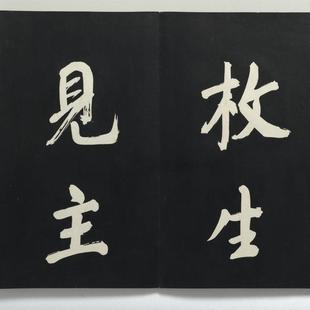 枚生
見主